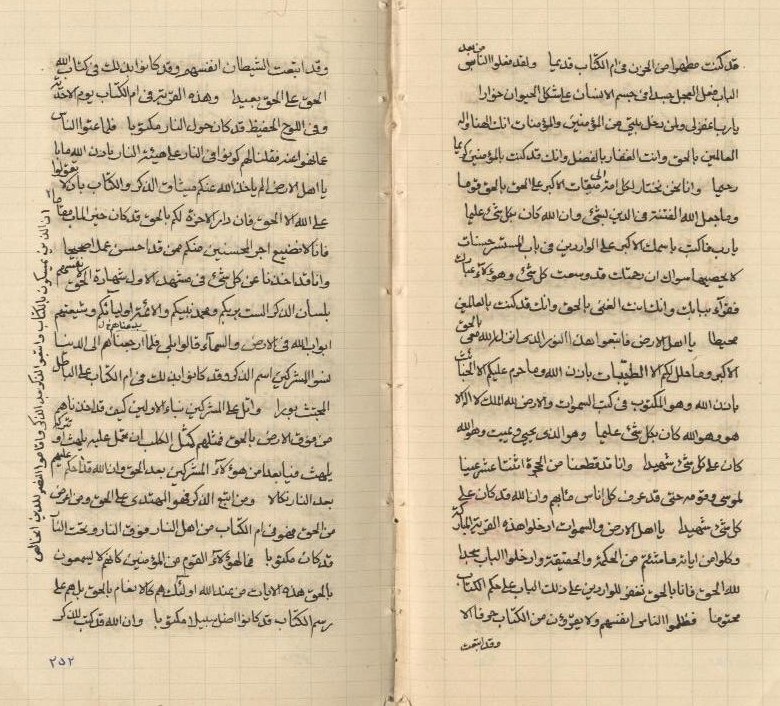 قد كنت مظهرا من الحزن فى ام الكتاب قديما ولقد فعلوا الناس من بعد
الباب فعل العجل جسدا فى جسم الانسان على شكل الحيوان خوارا
يا رب اغفر لى ولمن دخل بيتى من المؤمنين والمؤمنات انك الهنا واله
العالمين بالحق وانت الغفار بالفضل وانك قد كنت بالمؤمنين كريما
رحيما وانا نحن نختار لكل امة الى ميقات الاكبر على الحق بالحق قوما
وما جعل الله الفتنة فى الدين لشئ وان الله كان بكل شئ عليما
يا رب فاكتب باسمك الاكبر على الواردين فى باب المستسر حسنات
لا يحصيها سواك ان رحمتك قد وسعت كل شئ وهؤلاء عبادك
فقراء ببابك وانك انت الغنى بالحق وانك قد كنت بالعالمين
محيطا يا اهل الارض فاتبعوا هذا النور الذى انزل الله معى بالحق
الاكبر وما حلل لكم الا الطيبات باذن الله وما حرم عليكم الا الخبائث
باذن الله وهو المكتوب فى كتب السموات والارض لله الملك لا اله الا
هو وهو الله كان بكل شئ عليما وهو الذى يحيى ويميت وهو الله
كان على كل شئ شهيدا وانا قد قطعنا من الحجرة اثنتا عشر عينا
لموسى وقومه حتى قد عرف كل اناس مشربهم وان الله قد كان على
كل شئ شهيدا يا اهل الارض والسموات ادخلوا هذه القرية المباركة
وكلوا من ايات ها ما شئتم من الحكمة والحقيقة وادخلوا الباب سجدا
لله الحق فانا بالحق نغفر للواردين على ذلك الباب على حكم الكتاب
محتوما فظلموا الناس انفسهم ولا يقرؤن من الكتاب حرفا الا
وقد ابتعت
وقد ابتعت الشيطان انفسهم وقد كانوا بذلك فى كتاب الله
الحق على الحق بعيدا وهذه القرية فى ام الكتاب يوم الاخذ
وفى اللوح الحفيظ قد كان حول النار مكتوبا فلما عتوا الناس
عما نهوا عنه فقلنا لهم كونوا فى النار على هيئة النار باذن الله مابا
يا اهل الارض الم ياخذ الله عنكم ميثاق الذكر والكتاب بان لا تقولوا
على الله الا الحق فان دار الاخرة لكم بالحق قد كان خير المآب مقاما
فانا لا نضيع اجر المحسنين منكم ممن قد احسن عملا صحيحا
وانا قد اخذنا عن كل شئ فى مشهد الاول شهادة الحق بقسمهم
بلسان الذكر الست بربكم ومحمد نبيكم والائمة اوليائكم وشيعتهم
ابواب الله فى الارض والسماء قالوا بلى فلما ارجعناهم الى الدنيا
نسوا المشركين اسم الذكر وقد كانوا بذلك فى ام الكتاب على الباطل
المجتث بورا واتل على المشركين نباء الاولين كيف قد اخذناهم
من فوق الارض بالحق فمثلهم كمثل الكلب ان تحمل عليه يلهث او تتركه
يلهث فيا بعدا من هؤلاء المشركين بعد الحق وان الله قد احكم عليهم
بعد النار نكالا ومن اتبع الذكر فهو المهتدى على الحق ومن اعرض
من الحق فهو فى ام الكتاب من اهل النار فوق النار وتحت النار
قد كان مكتوبا فما لهؤلاء القوم من المؤمنين كانهم لا يسمعون
بالحق هذه الايات من عند الله اولئك هم كالانعام بالحق بل هم على
رسم الكتاب قد كانوا اضل سبيلا مكتوبا وان الله قد كتب للذكر
٢٥٢